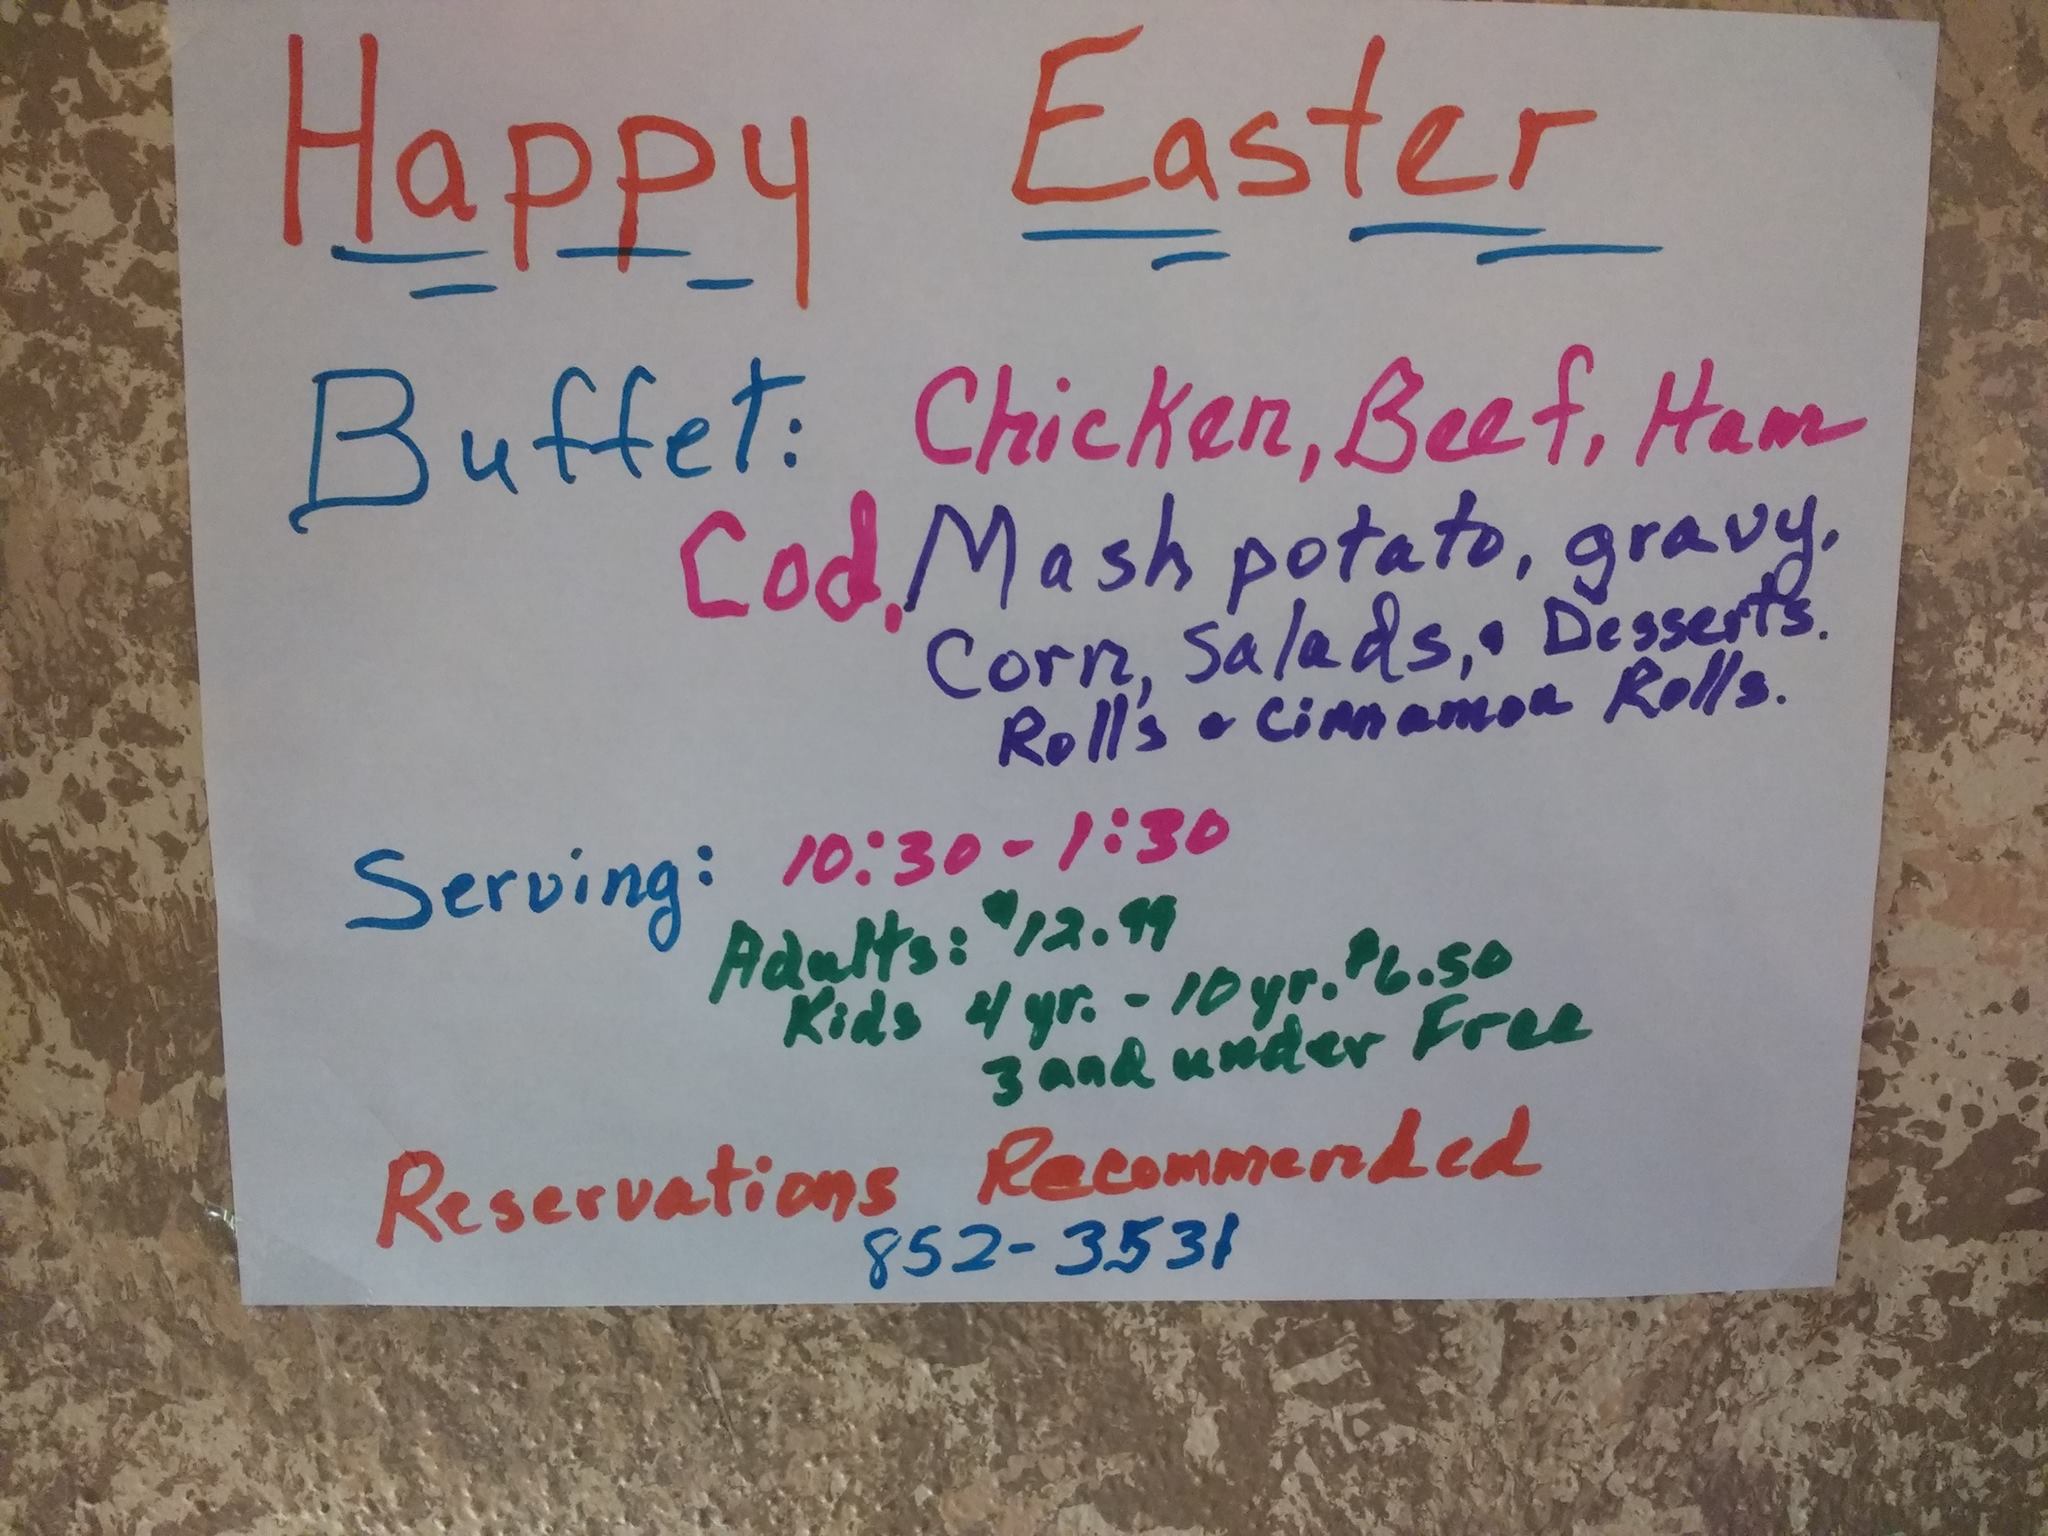 Happy Easter
Buffet: Chicken, Beef, Ham
Cod, Mash potato, gravy,
Corn, Salads, & Desserts.
Rolls & Cinnamon Rolls.
Serving: 10:30 - 1:30
Adults: $12.99
Kids 4 yr. - 10 yr. $6.50
3 and under Free
Reservations Recommended
852-3531